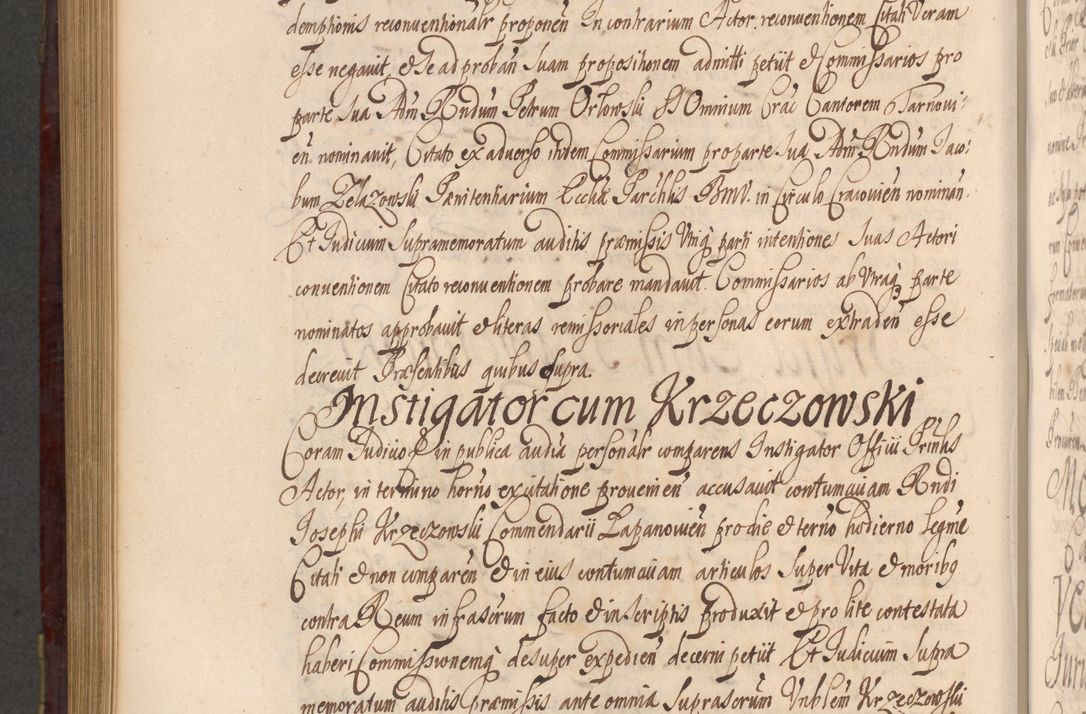 demptionis reconventionalr proponen In contrarium Actor reconventionem Citati Veram
esse negavit, et se ad proban suam propositionem admitti petiit et Commissarios pro
parte sua Adm Rndum Petrum Orłowski SS Omnium Crac Cantorem Tarnovi:
en nominavit, Citato ex adverso itidem Commissarium pro parte sua Adm Rndum Jaco:
bum Zelazowski Pænitentiarium Ecclæ Parchlis BMV. in Circulo Cracovien nominan
Et Judicium supramemoratum auditis præmissis Utriq parti intentiones suas Actori
conventionem Citato reconventionem probare mandavit. Commissarios ab utraq parte
nominatos approbavit et literas remissoriales in personas eorum extraden esse
decrevit Præsentibus quibus supra.
Instigator cum Krzeczowski
Coram Judicio et in publica audia personalr comparens Instigator Officii Prnlis
Actor, in termino horno ex citatione provenien accusavit contumaciam Rndi
Josephi Krzeczowski Commendarii Łapanovien pro die et terno hodierno legme
Citati et non comparen et in eius contumaciam articulos super Vita et moribq
contra Reum infrascrum facto et in scriptis produxit et pro lite contestata
haberi Commissionemq desuper expedien decerni petiit Et Judicium supra
memoratum auditis præmissis ante omnia suprascrum Vnblem Krzeczowski